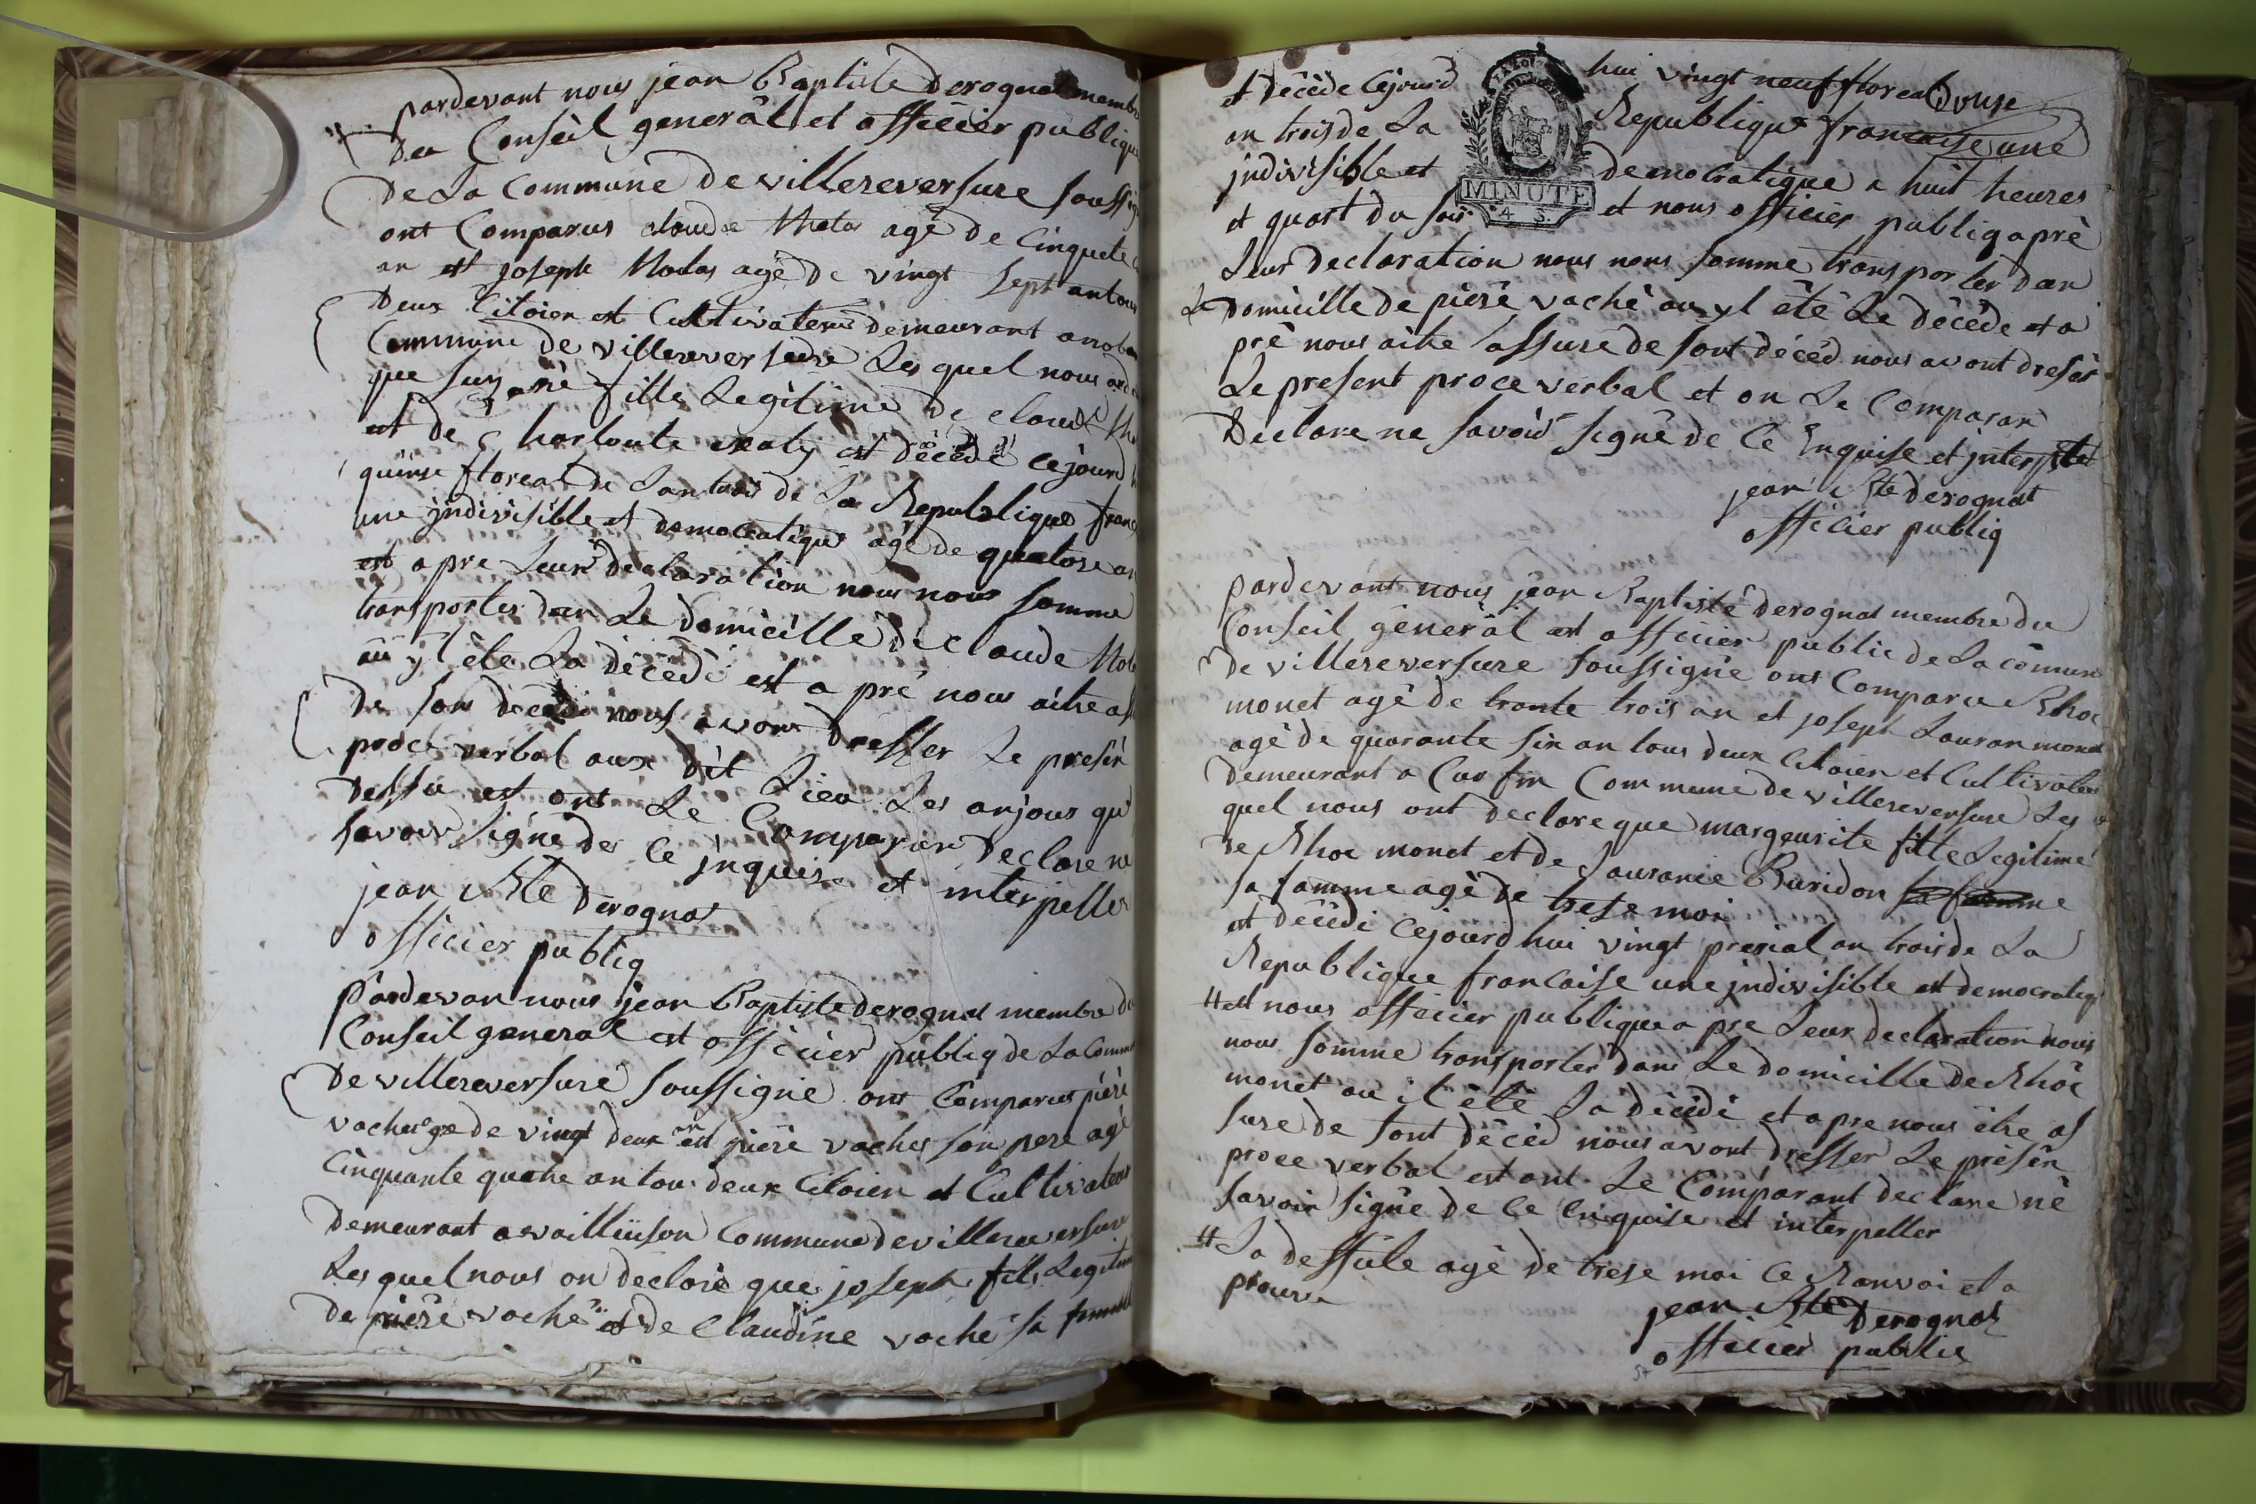 pardevant nous jean Baptiste Derognat membr
du Conseil generâl et officier publiqu
De La Commune De villereversure soussig
ont Comparus claude agé De Cinquete
an est joseph agé De vingt sept an tous
Deux Citoien est Cultivateur demeurant
Commune De villereversure Les quel nous
que fille Legitime De claude
et de est décédé ce jourd
quinse floreal de Lan trois de La Republique franç
une jndivisible et democratique agé de quatorse an
est apre Leur declaration nous nous somme
transporter dan Le Domicille De Claude
au yl éte La décédé est a pré nous aitre as
De son décéd nous avons Dresser Le presen
proce verbal aux dit Lieu Les an jour qu
Dessu est ont Le Comparan Declare ne
savoir signé de Ce jnquis et interpeller
jean Bte Derognat
officier publiq
Pardevan nous jean Baptiste derognat membre du
Conseil general est officier publiq de La Comm
De villereversure soussigné ont Comparus piére
vaché agé de vingt deux an est piére vaché son pere agé
Cinquante quatre an tous deux Citoien et Cultivateur
Demeurant a vaillieuson Commune de villereversure
Les quel nous on déclaré que joseph fils Legitim
De piére vaché et de Claudine vaché sa femme
et Décédé Cejourd hui vingt neuf floreal
an trois de La Republique francaise une
jndivisible et democratique a huit heures
et quart du soir et nous officier publiq a pré
MINUTE
4 S.
Leur declaration nous nous somme transporter dan
Le Domicille de piére vaché ou yl été Le décédé et a
pré nous aitre assure de sont décéd nous avont dresér
Le present proce verbal et on Le Comparan
Declare ne savoir signé de Ce Enquise et
jean Bte derognat
officier publiq
pardevant nous jean Baptiste derognat membre du
Conseil général est officier public de La Commune
De villereversure soussigné ont Comparu
monet agé de trante trois an et joseph Lauran monet
agé de quarante six an tous deux Citoien et Cultivateur
Demeurant a Commune de villereversure Les
quel nous ont declare que margeurite fille Legitime
de monet et de Lauranie Buridon
sa famme agé de trese moi
et décédé Cejourd hui vingt prerial an trois de La
Republique francaise une jndivisible et democratiq
# est nous officier publique a pre Leur declaration nous
nous somme transporter dans Le domicille de
monet ou il été La décédé et a pre nous être as
sure de sont décéd nous avont dresser Le présen
proce verbal est ont Le Comparant declare né
savoir signé de Ce Enquise et interpeller
# La agé de trese moi Ce Ranvoi et a
prouve
jean Bte Derognat
officier public